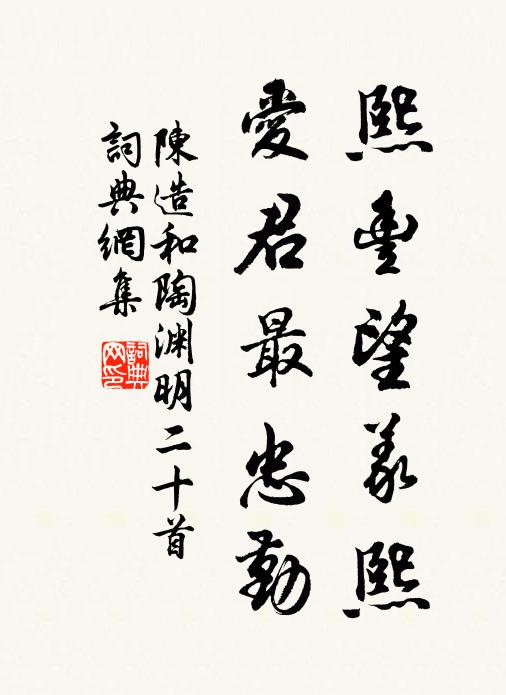 熙豐望羲熙
愛君最忠勤
陳造和陶淵明二十首
詞典網集
詞典網印